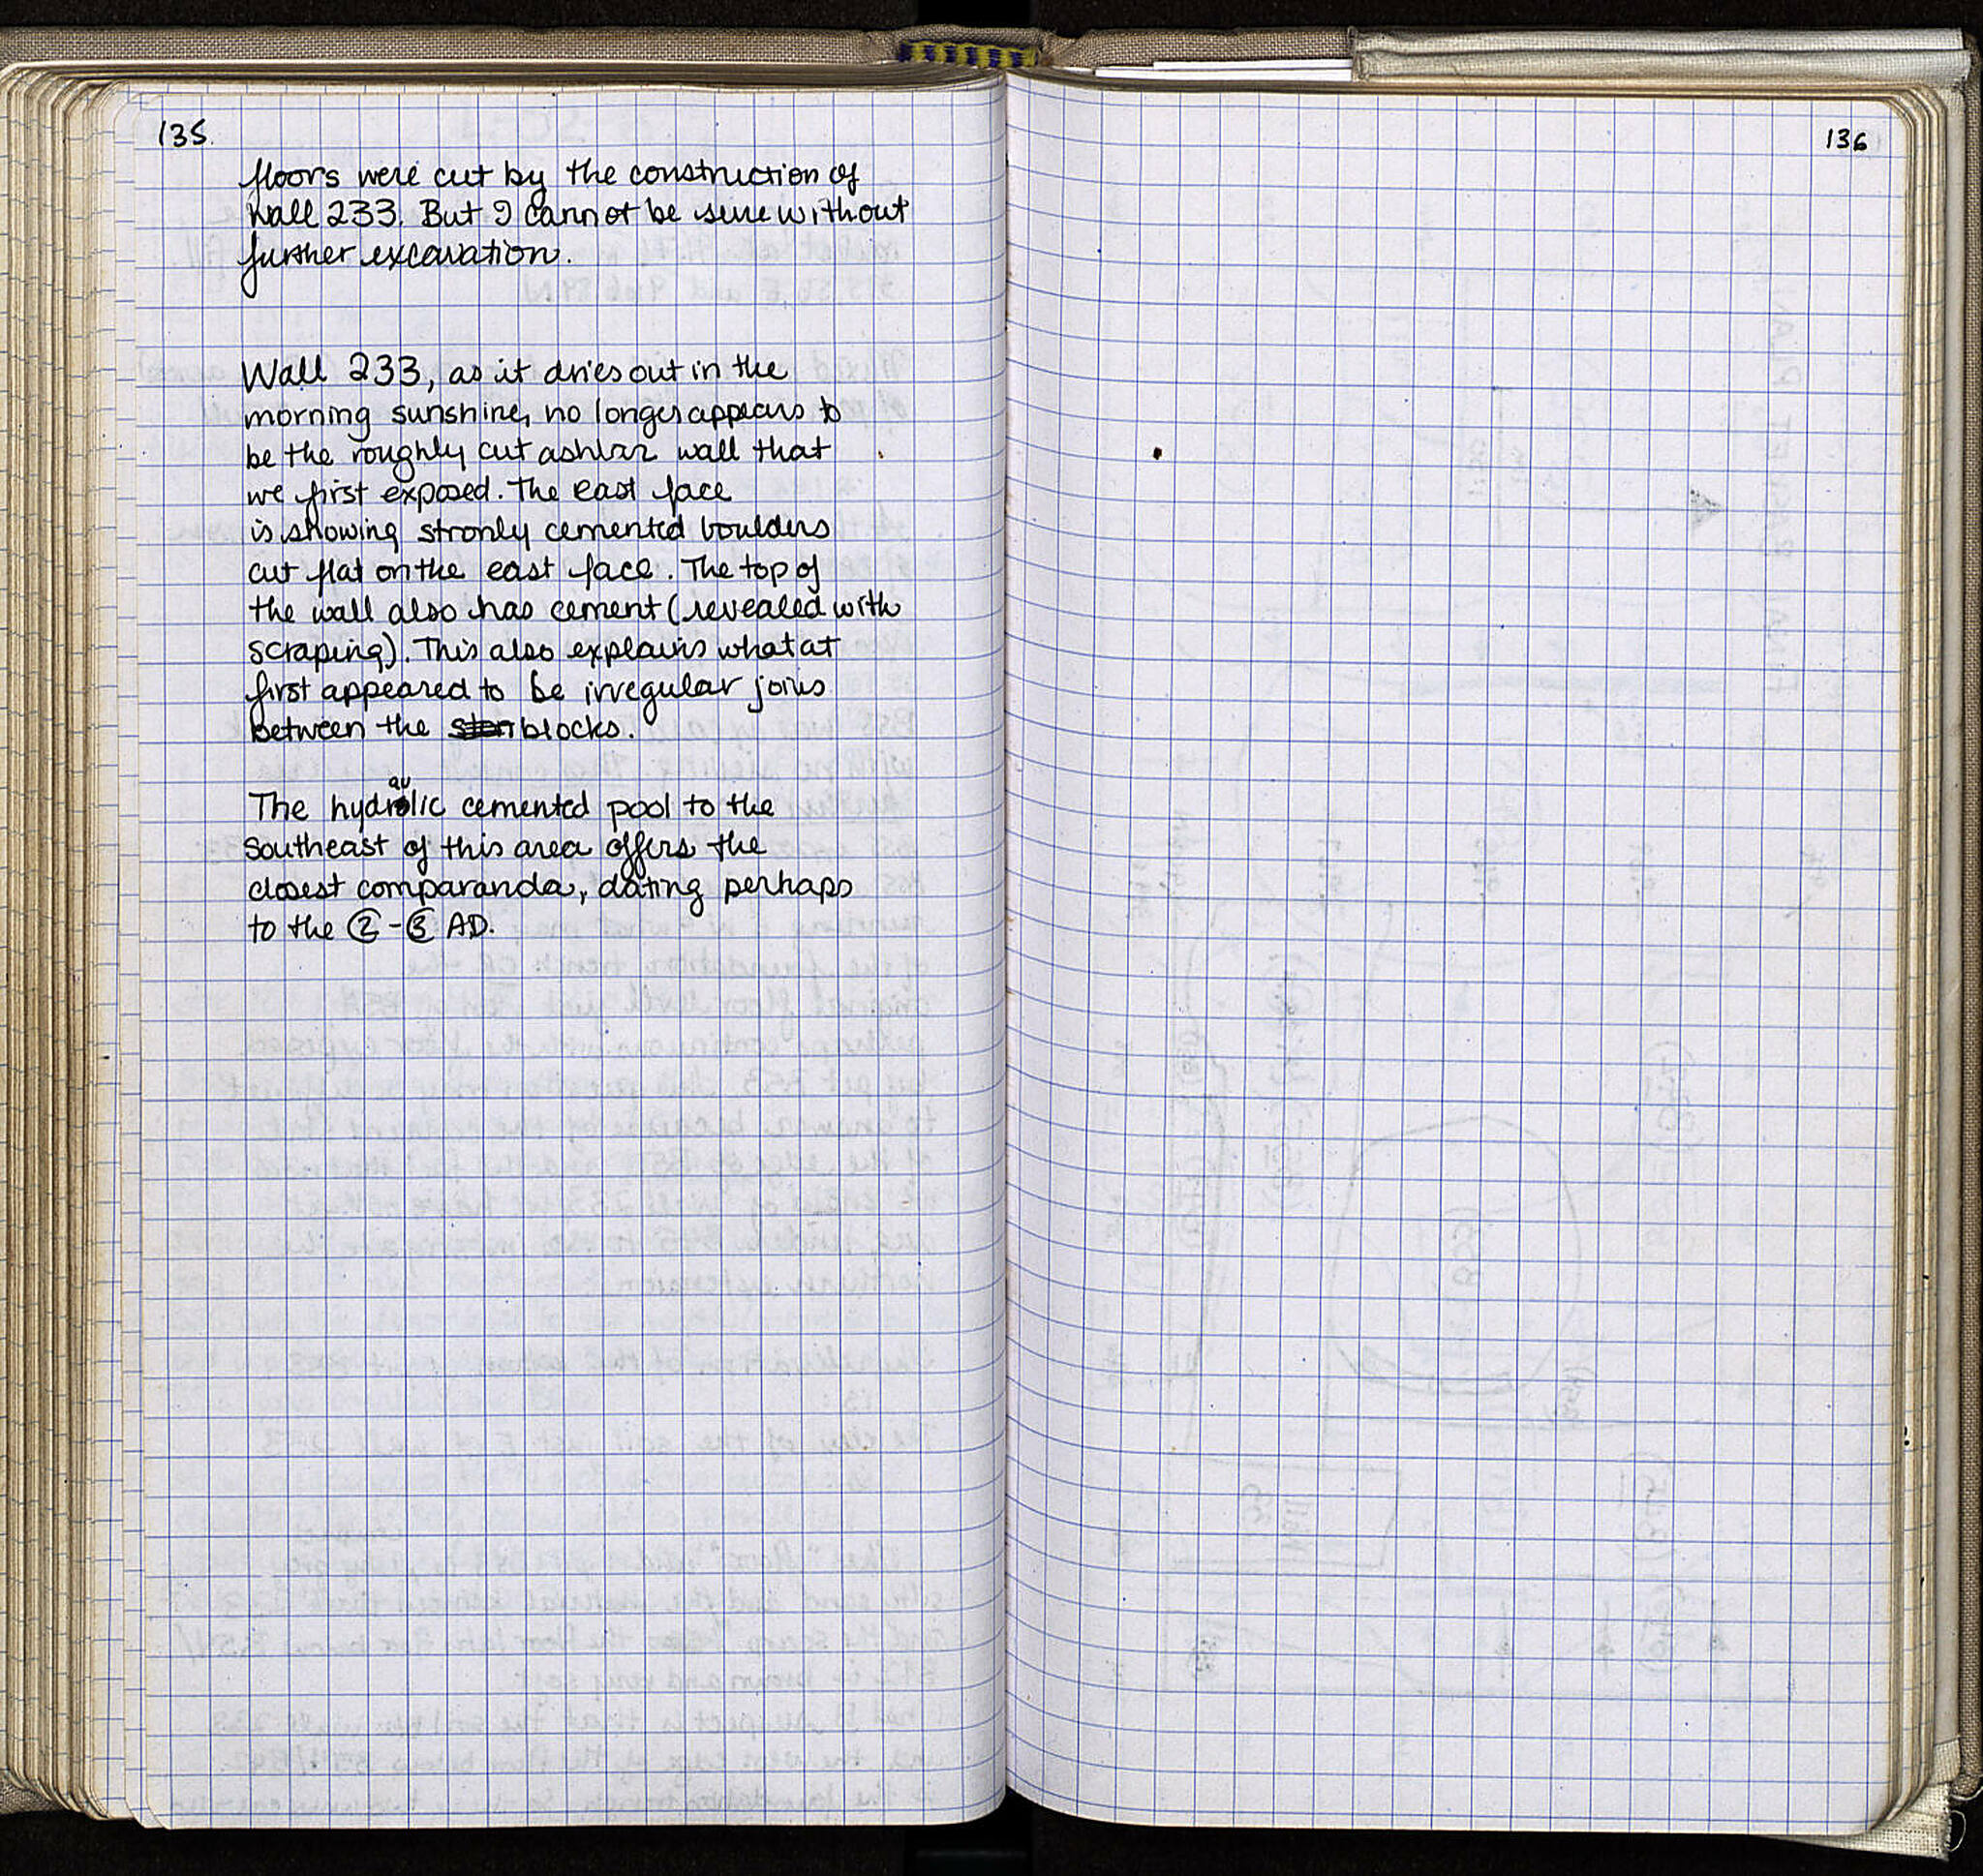 135.
floors were cut by the construction of
Wall 233. But I cannot be sure without
further excavation.
Wall 233, as it dries out in the
morning sunshine, no longer appears to
be the roughly cut ashlar wall that
we first exposed. The east face
is showing stronly cemented boulders
cut flat on the east face. The top of
the wall also has cement (revealed with
scraping). This also explains what at
first appeared to be irregular joins
between the blocks.
The hydraulic cemented pool to the
Southeast of this area offers the
closest comparanda, dating perhaps
to the ② - ③ AD.
136